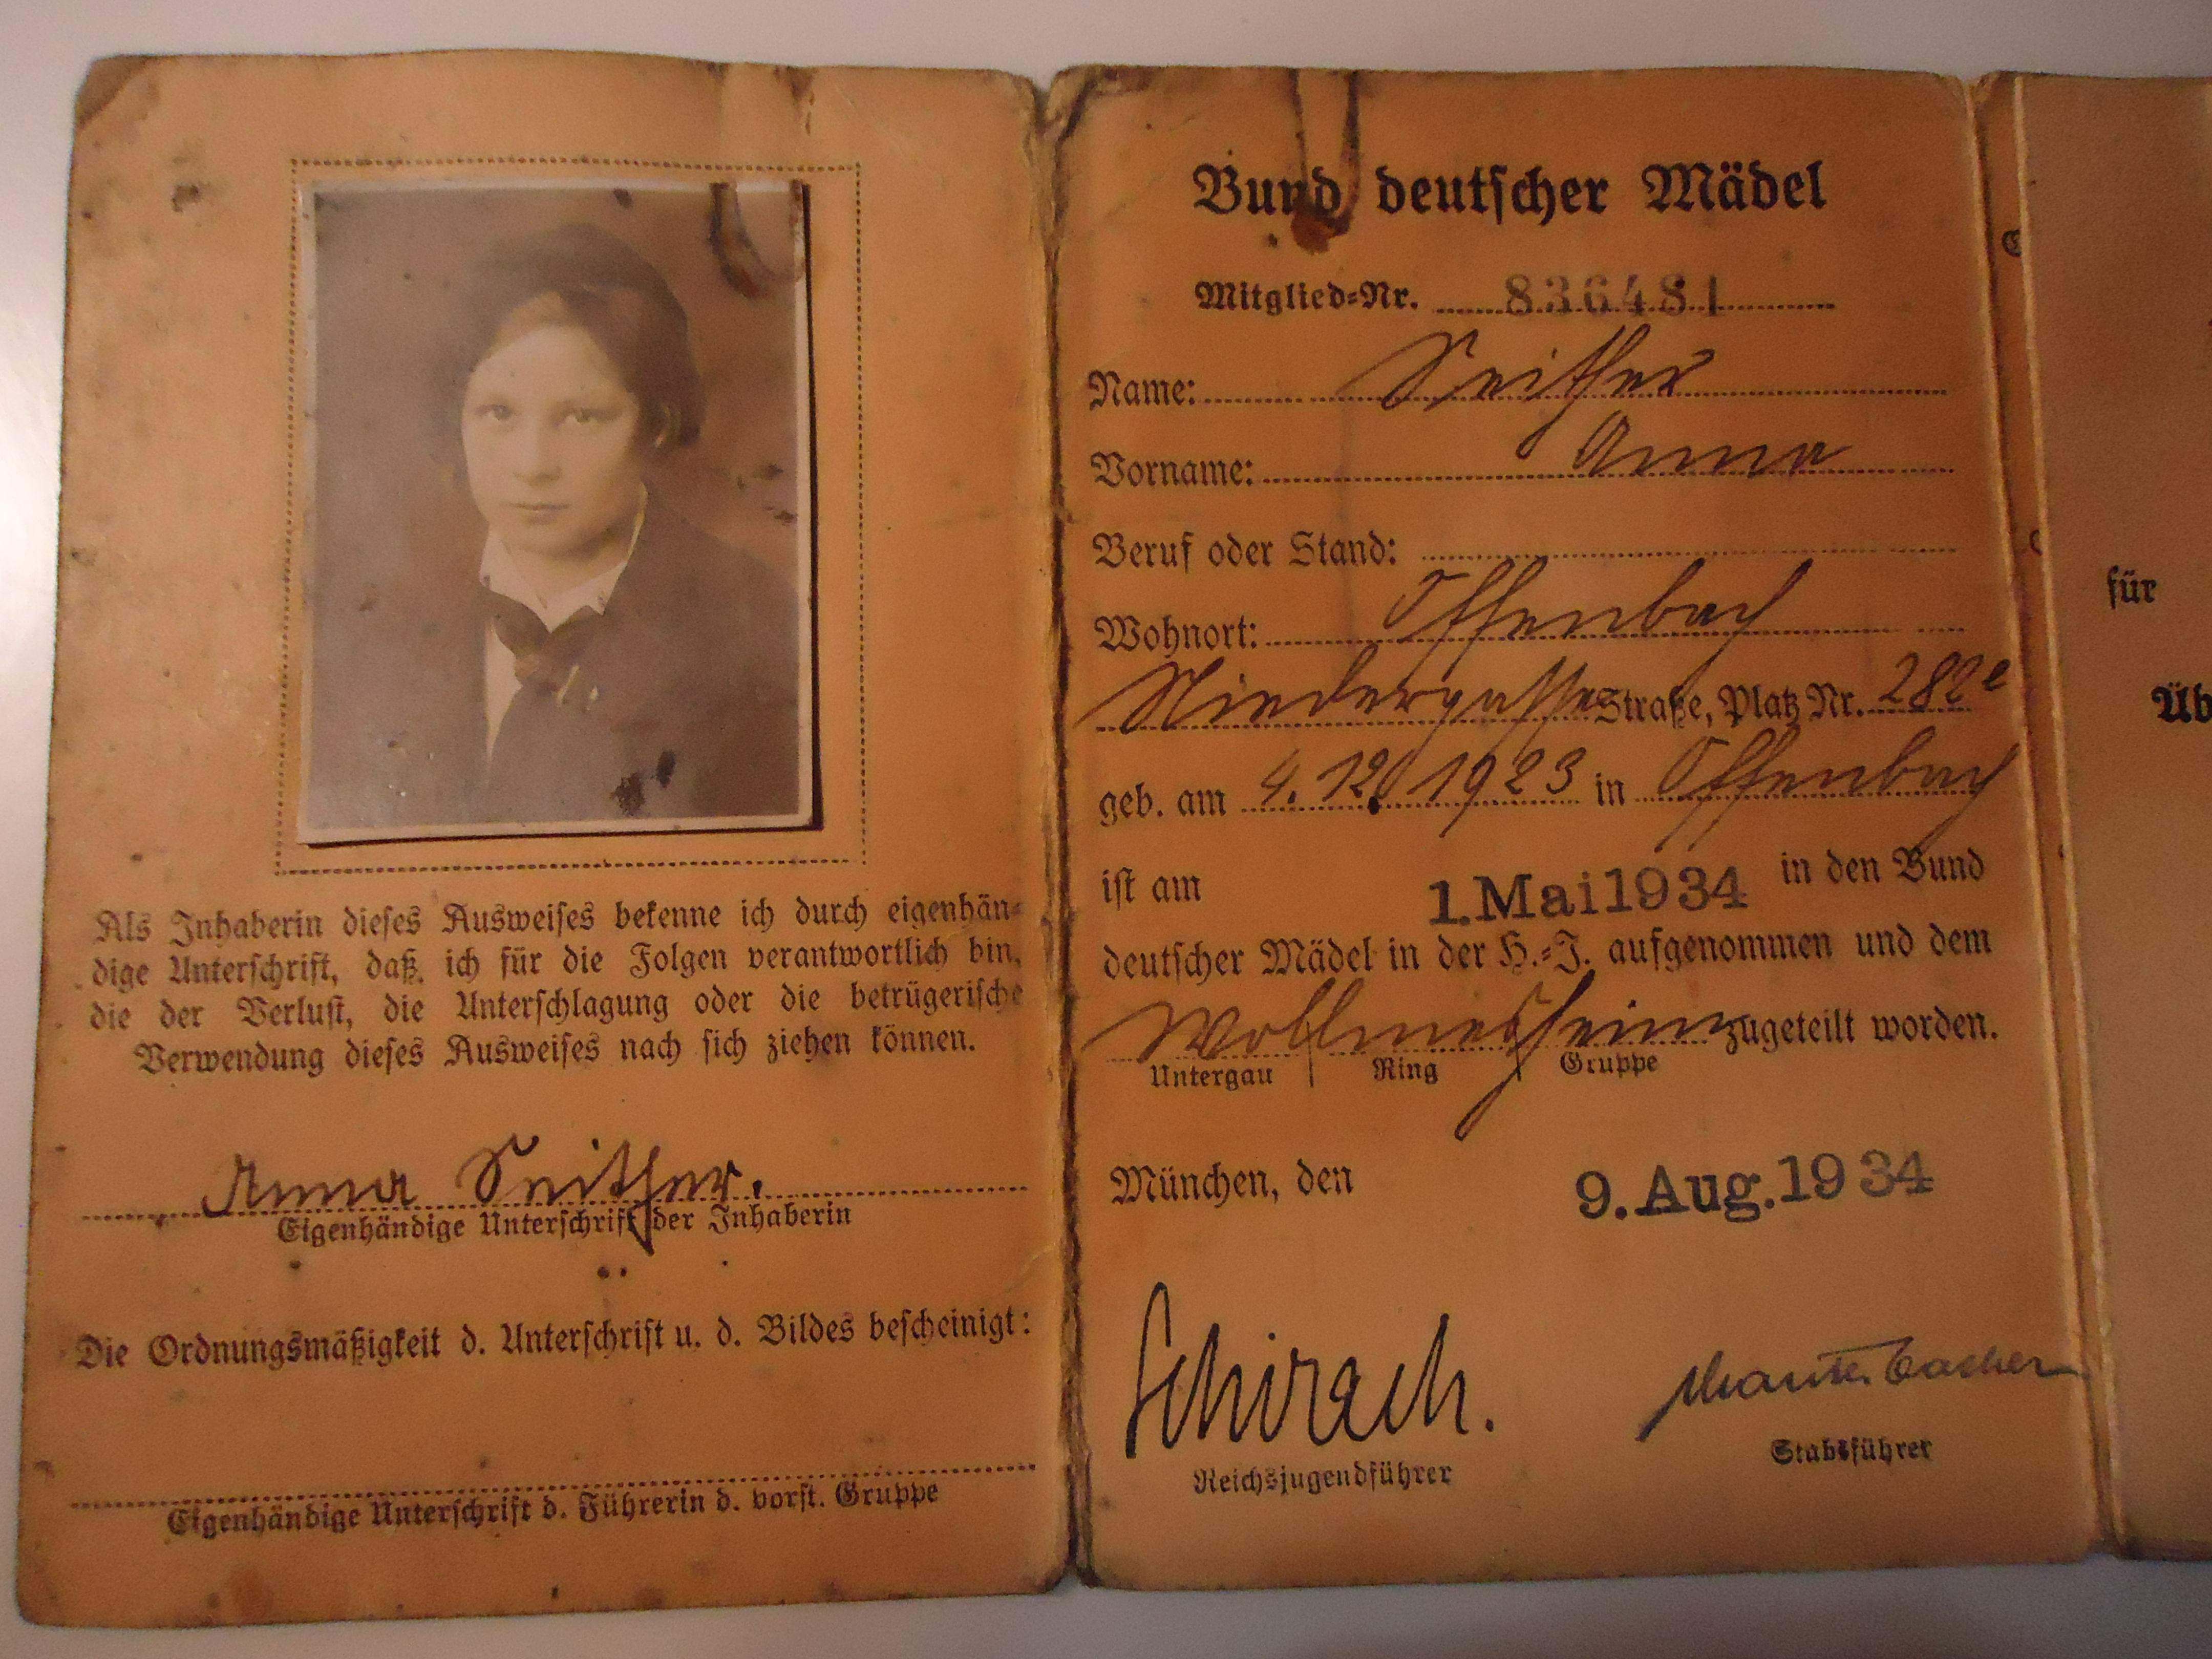 Als Inhaberin dieses Ausweises bekenne ich durch eigenhän-
dige Unterschrift, daß ich für die Folgen verantwortlich bin,
die der Verlust, die Unterschlagung oder die betrügerische
Verwendung dieses Ausweises nach sich ziehen können.
Anna Seither.
Eigenhändige Unterschrift der Inhaberin
Die Ordnungsmäßigkeit d. Unterschrift u. d. Bildes bescheinigt:
Eigenhändige Unterschrift d. Führerin d. vorst. Gruppe
Bund deutscher Mädel
Mitglied-Nr. 836481
Name: Seither
Vorname: Anna
Beruf oder Stand:
Wohnort: Offenbach
Niedergasse Straße, Platz Nr. 282e
geb. am 4.12.1923 in Offenbach
ist am 1. Mai 1934 in den Bund
deutscher Mädel in der H.-J. aufgenommen und dem
Wollmesheim zugeteilt worden.
Untergau Ring Gruppe
München, den 9. Aug. 1934
Schirach.
Reichsjugendführer
Stabsführer
für
Üb